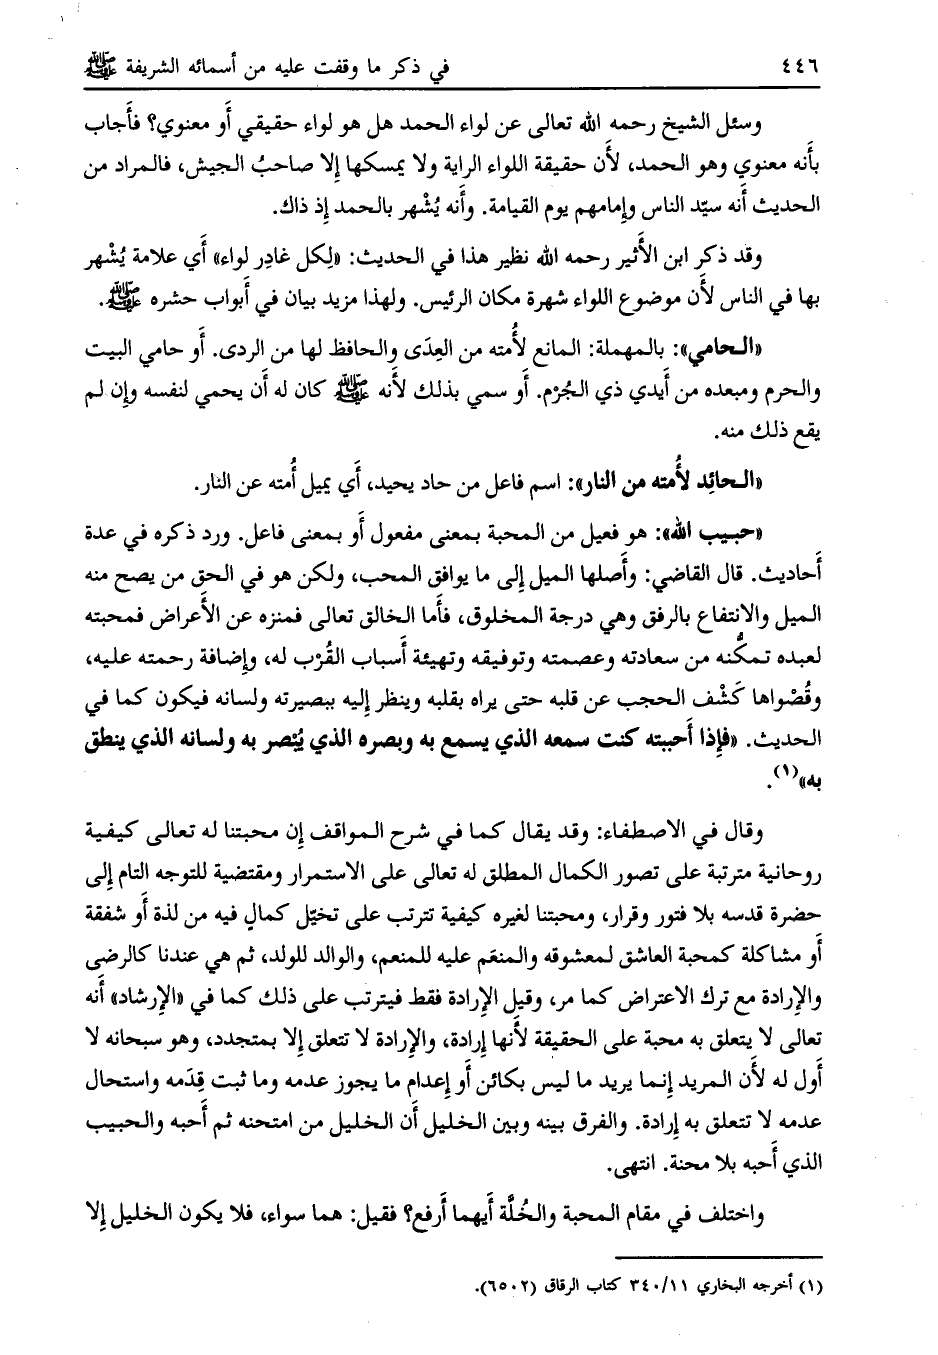 ٤٤٦ في ذكر ما وقفت عليه من أسمائه الشريفة ﷺ
وسئل الشيخ رحمه الله تعالى عن لواء الحمد هل هو لواء حقيقي أو معنوي؟ فأجاب
بأنه معنوي وهو الحمد، لأن حقيقة اللواء الراية ولا يمسكها إلا صاحبُ الجيش، فالمراد من
الحديث أنه سيّد الناس وإمامهم يوم القيامة. وأنه يُشْهر بالحمد إذ ذاك.
وقد ذكر ابن الأثير رحمه الله نظير هذا في الحديث: «لِكل غادِر لواء» أي علامة يُشْهر
بها في الناس لأن موضوع اللواء شهرة مكان الرئيس. ولهذا مزيد بيان في أبواب حشره ﷺ.
«الحامي»: بالمهملة: المانع لأُمته من العِدَى والحافظ لها من الردى. أو حامي البيت
والحرم ومبعده من أيدي ذي الجُرْم. أو سمي بذلك لأنه ﷺ كان له أن يحمي لنفسه وإن لم
يقع ذلك منه.
«الحائِد لأُمته من النار»: اسم فاعل من حاد يحيد، أي يميل أُمته عن النار.
«حبيب الله»: هو فعيل من المحبة بمعنى مفعول أو بمعنى فاعل. ورد ذكره في عدة
أحاديث. قال القاضي: وأصلها الميل إلى ما يوافق المحب، ولكن هو في الحق من يصح منه
الميل والانتفاع بالرفق وهي درجة المخلوق، فأما الخالق تعالى فمنزه عن الأعراض فمحبته
لعبده تمكُّنه من سعادته وعصمته وتوفيقه وتهيئة أسباب القُرْب له، وإضافة رحمته عليه،
وقُصْواها كَشْف الحجب عن قلبه حتى يراه بقلبه وينظر إليه ببصيرته ولسانه فيكون كما في
الحديث. «فإذا أحببته كنت سمعه الذي يسمع به وبصره الذي يُبْصر به ولسانه الذي ينطق
به»(١).
وقال في الاصطفاء: وقد يقال كما في شرح المواقف إن محبتنا له تعالى كيفية
روحانية مترتبة على تصور الكمال المطلق له تعالى على الاستمرار ومقتضية للتوجه التام إلى
حضرة قدسه بلا فتور وقرار، ومحبتنا لغيره كيفية تترتب على تخيّل كمالٍ فيه من لذة أو شفقة
أو مشاكلة كمحبة العاشق لمعشوقه والمنعَم عليه للمنعم، والوالد للولد، ثم هي عندنا كالرضى
والإرادة مع ترك الاعتراض كما مر، وقيل الإرادة فقط فيترتب على ذلك كما في «الإرشاد» أنه
تعالى لا يتعلق به محبة على الحقيقة لأنها إرادة، والإرادة لا تتعلق إلا بمتجدد، وهو سبحانه لا
أول له لأن المريد إنما يريد ما ليس بكائن أو إعدام ما يجوز عدمه وما ثبت قِدَمه واستحال
عدمه لا تتعلق به إرادة. والفرق بينه وبين الخليل أن الخليل من امتحنه ثم أحبه والحبيب
الذي أحبه بلا محنة. انتهى.
واختلف في مقام المحبة والخُلَّة أيهما أرفع؟ فقيل: هما سواء، فلا يكون الخليل إلا
(١) أخرجه البخاري ٣٤٠/١١ كتاب الرقاق (٦٥٠٢).